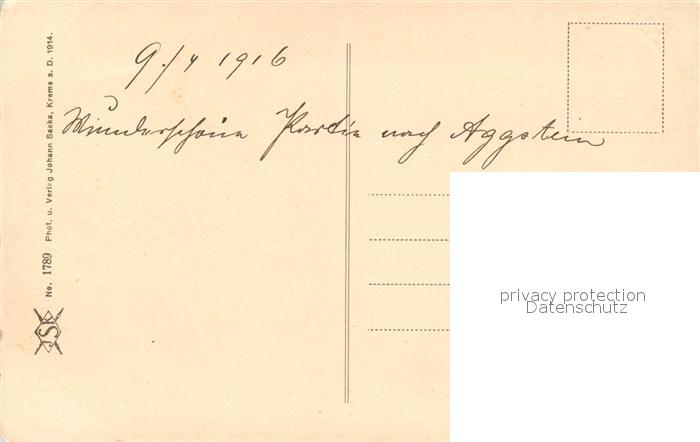 9./4 1916
Wunderschöne Partie nach Aggstein
No. 1789 Phot. u. Verlag Johann Saska, Krems a. D. 1914.
JSK
privacy protection
Datenschutz